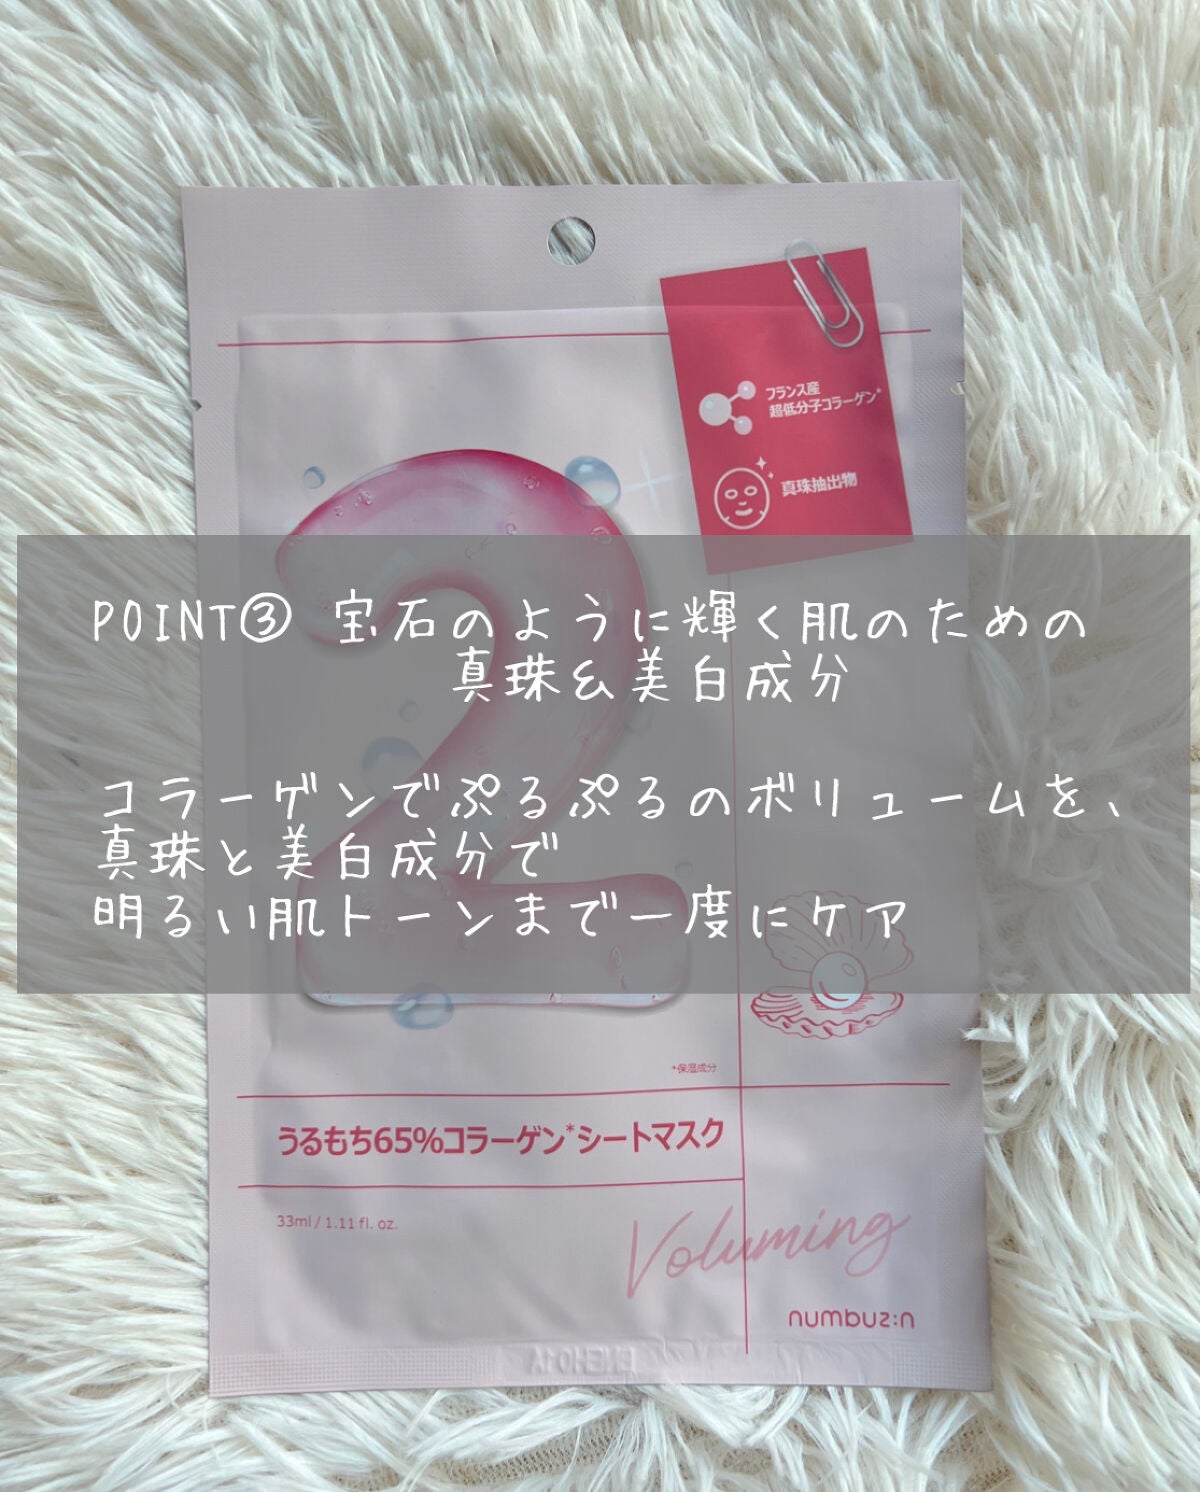 フランス産
超低分子コラーゲン*
真珠抽出物
POINT③ 宝石のように輝く肌のための
真珠&美白成分
コラーゲンでぷるぷるのボリュームを、
真珠と美白成分で
明るい肌トーンまで一度にケア
2
*保湿成分
うるもち65%コラーゲン*シートマスク
33ml / 1.11 fl. oz.
Voluming
numbuz:n